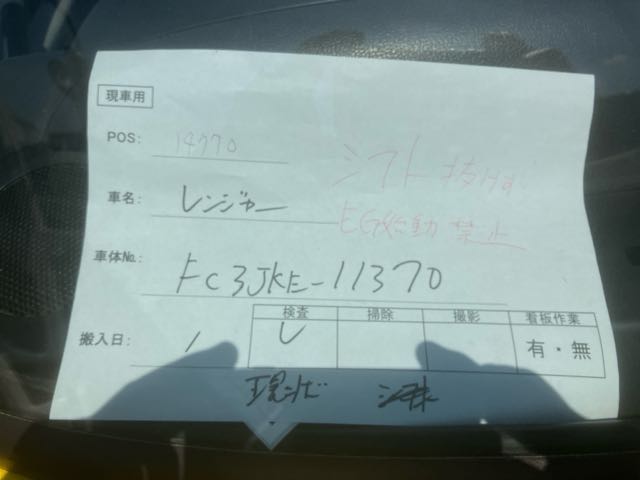 現車用
POS: 14770
シフト 抜けず
車名: レンジャー
EG始動禁止
車体No.: FC3JKE-11370
検査 掃除 撮影 看板作業
搬入日: / レ 有・無